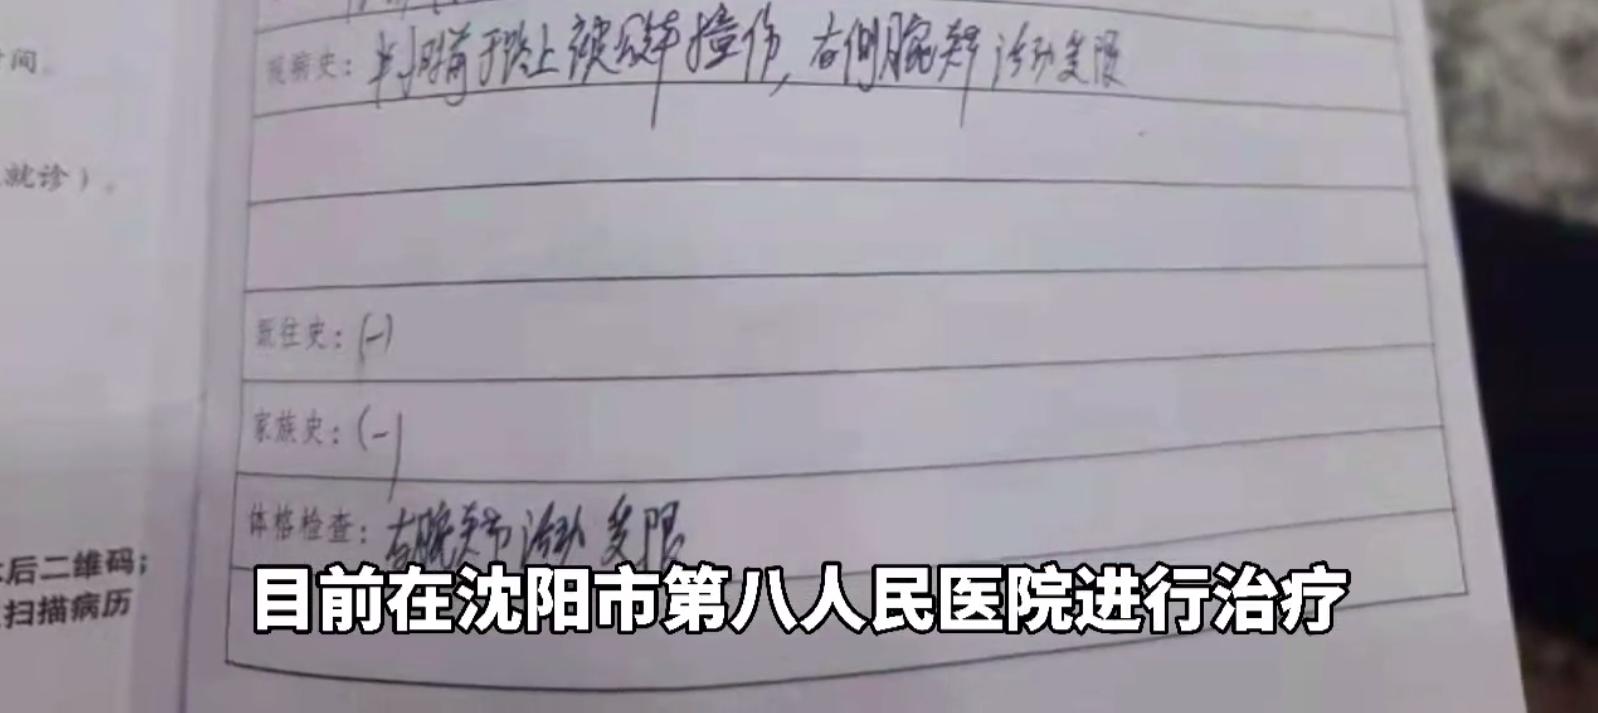 时间。
就诊）。
后二维码；
扫描病历
现病史：半小时前于路上被公车撞伤，右侧腕关节活动受限
既往史：(-)
家族史：(-)
体格检查：右腕关节活动受限
目前在沈阳市第八人民医院进行治疗